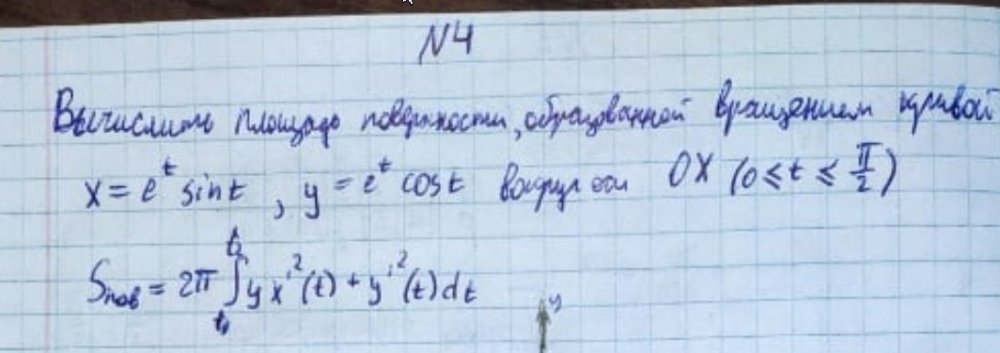 N4
Вычислить площадь поверхности, образованной вращением кривой
x = e^t sin t, y = e^t cos t вокруг оси OX (0 ≤ t ≤ π/2)
Sпов = 2π ∫_{t₁}^{t₂} y x'²(t) + y'²(t) dt
y